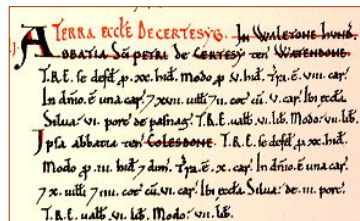 TERRA ECCLE DE CERTESYG. In WALETONE HUND.
ABBATIA Scī PETRI de CERTESY ten WATENDONE.
T.R.E. se defd̄ p. xx. hid̄. Modo p. v. hid̄. Tr̄a. ē. viii. car̄.
In dn̄io. ē una car̄. 7 xxvii. uitti 7 ii. cot̄ cū. v. car̄. Ibi eccl̄a
Silua. vi. porc̄ de pasnag̃. T.R.E. ualb̄. vi. lib̄. Modo. vii. lib̄.
Ipsa abbatia ten COLESDONE. T.R.E. se defd̄ p. xx. hid̄.
Modo p. iii. hid̄ 7 dim̄. Tr̄a. ē. x. car̄. In dn̄io. ē una car̄.
7 x. uitti 7 iii. cot̄ cū. vi. car̄. Ibi eccl̄a Silua. de. iii. porc̄.
T.R.E. ualb̄. vi. lib̄. Modo. vii. lib̄.